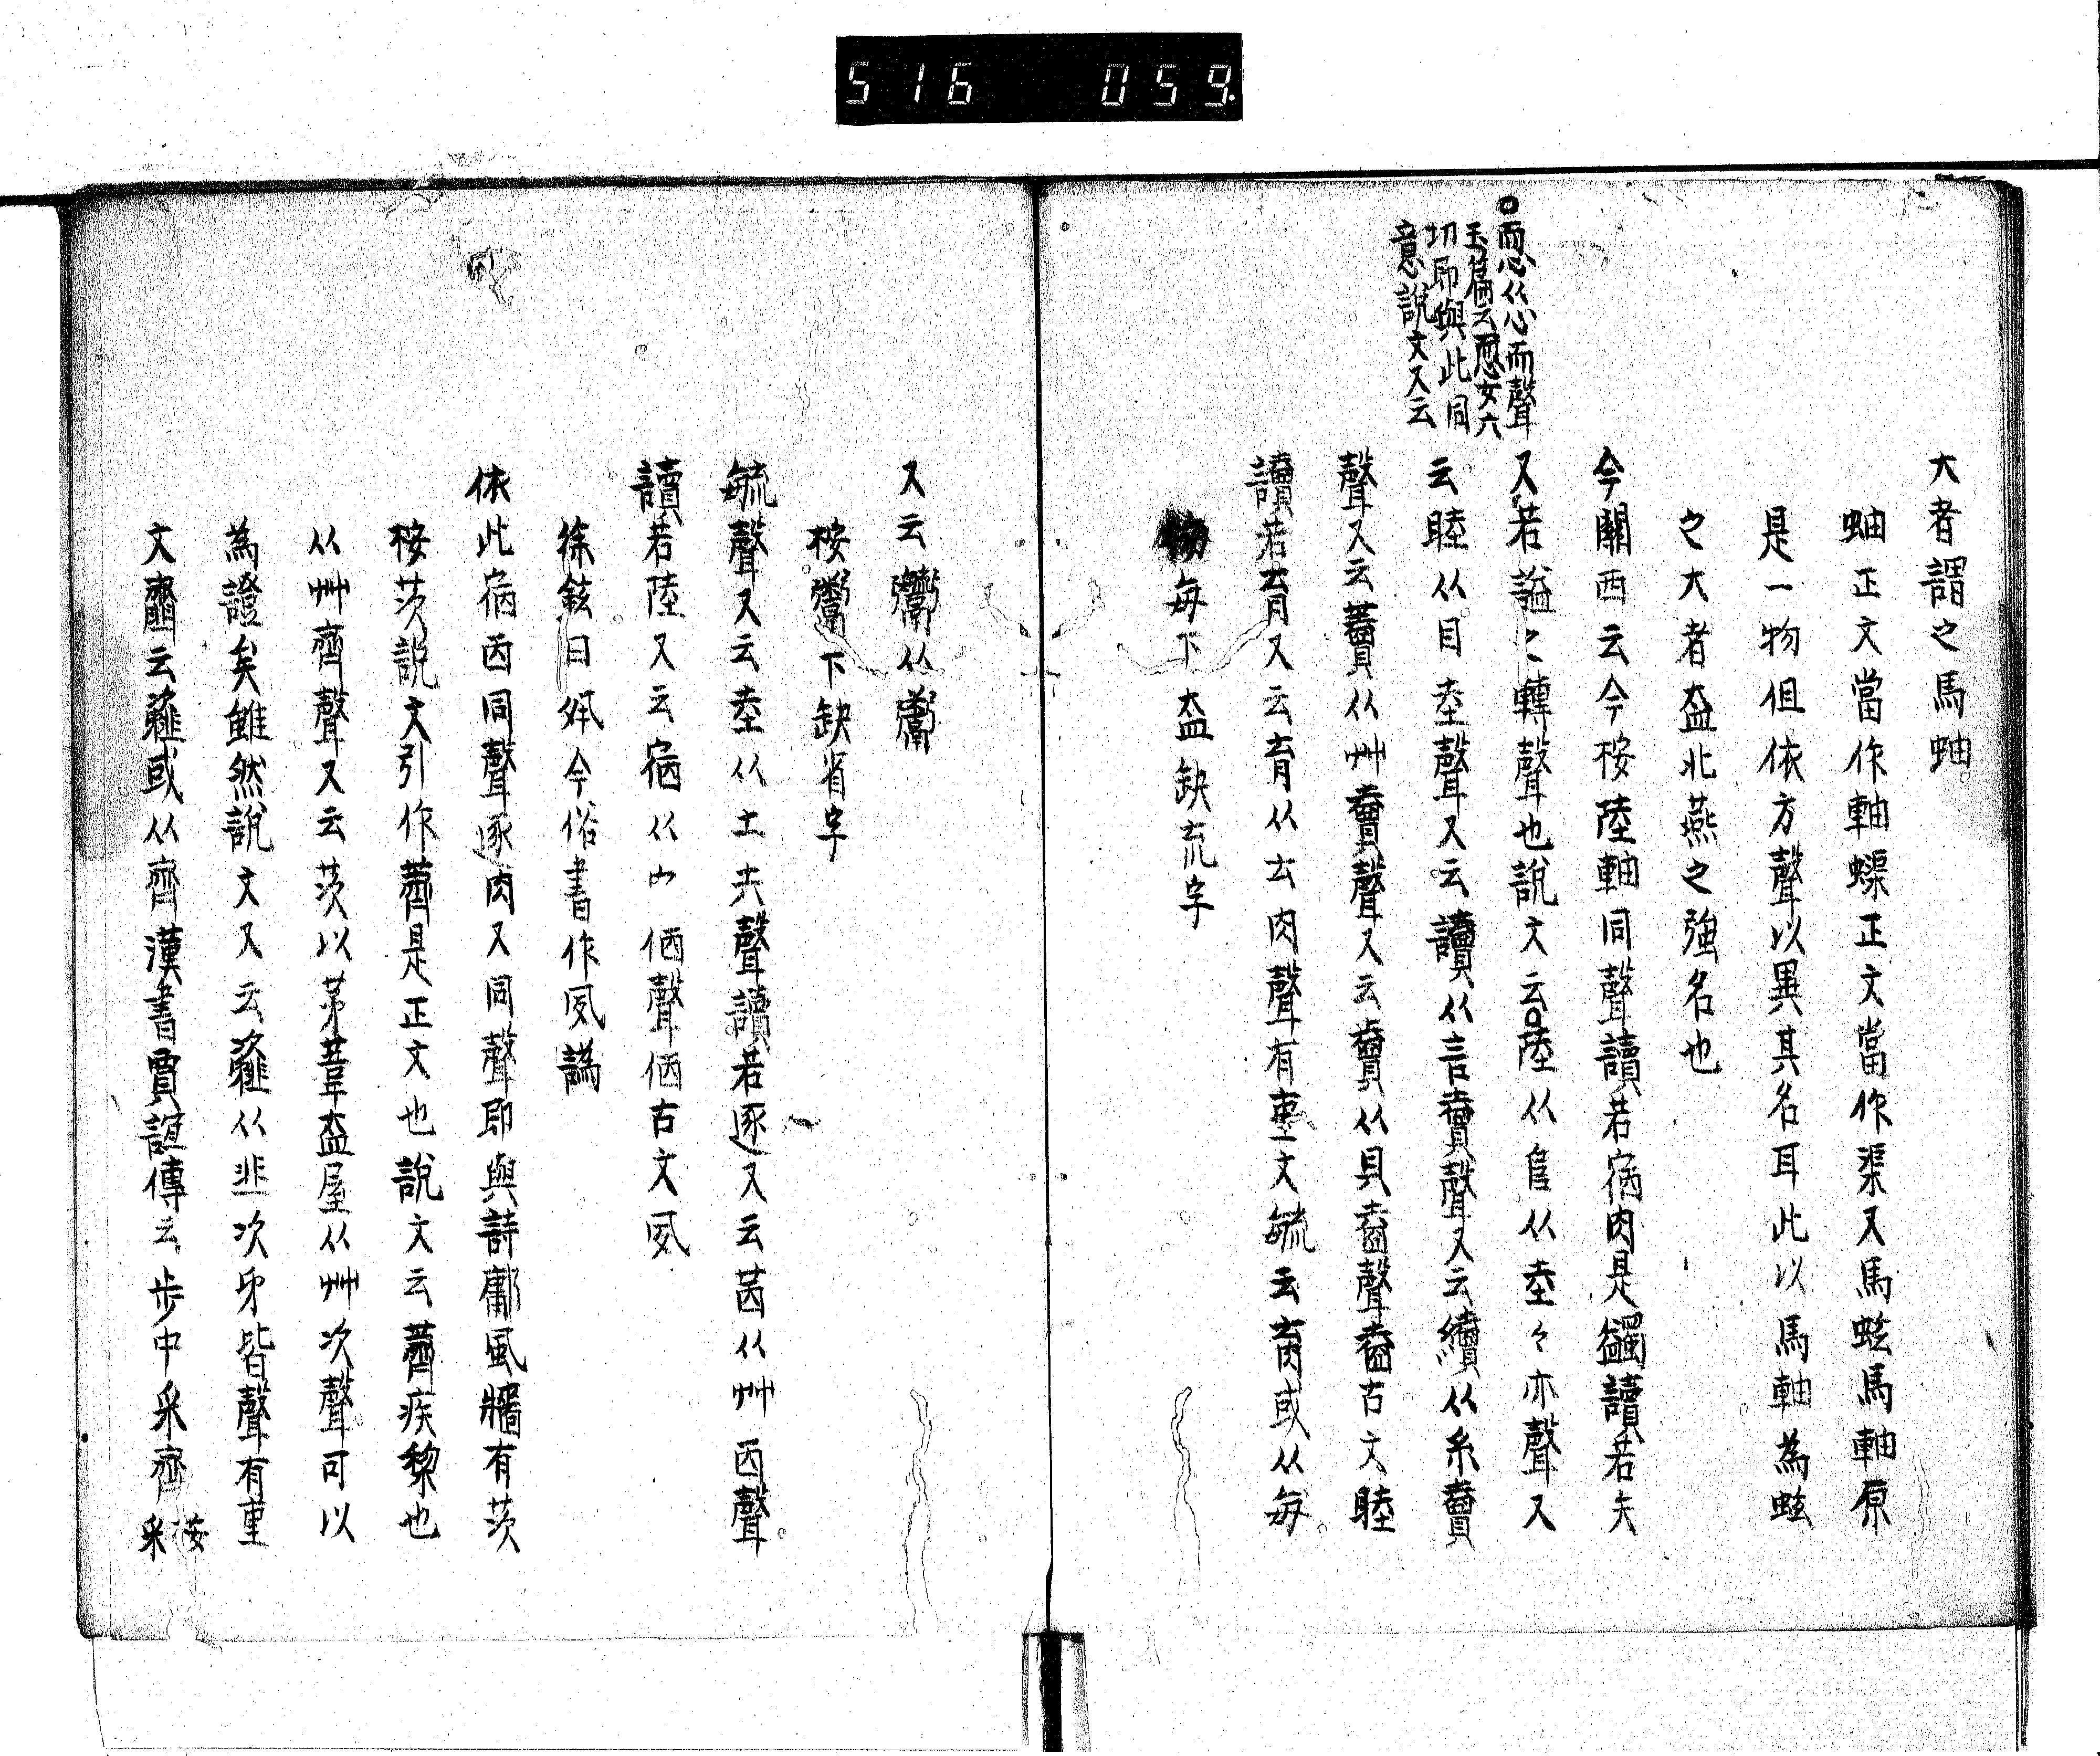 516 059.
大者謂之馬蚰
蚰正文當作軸蟝正文當作渠又馬蚿馬軸原
是一物但依方聲以異其名耳此以馬軸為蚿
之大者盇北燕之強名也
今關西云今桉陸軸同聲讀若㾈肉是蠲讀若夫
又若謚之轉聲也說文云陸从𨸏从坴々亦聲又
云睦从目坴聲又云讀从言𧶠聲又云續从糸𧶠
聲又云藚从艸𧶠聲又云𧶠从貝𡍬聲𡍬古文睦
讀若育又云育从𠫓肉聲有重文毓云育或从每
每下盇缺㐬字
而心从心而聲
玉篇云恧女六
切即與此同
意說文又云
又云鬻从䰜
桉鬻下缺省字
毓聲又云坴从土圥聲讀若逐又云茜从艸西聲
讀若陸又云宿从宀佰聲佰古文夙
徐鉉曰夙今俗書作夙譌
依此宿西同聲逐肉又同聲即與詩鄘風牆有茨
桉茨說文引作薺是正文也說文云薺疾黎也
从艸齊聲又云茨以茅葦盇屋从艸次聲可以
為證矣雖然說文又云韲从韭次𠂔皆聲有重
文齏云韲或从齊漢書賈誼傳云步中采齊 桉采